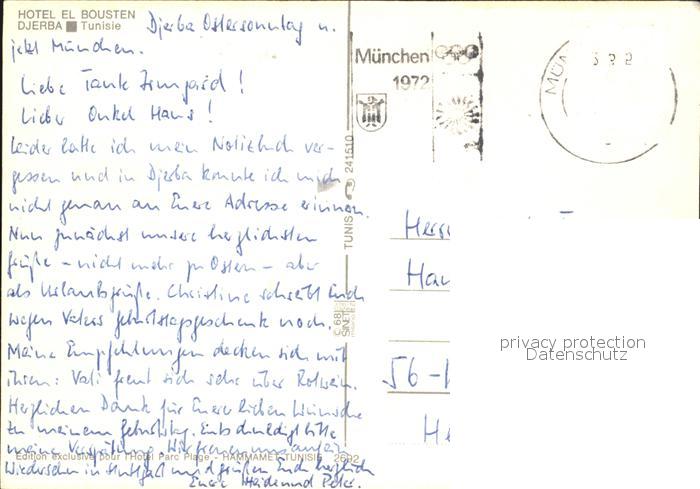 HOTEL EL BOUSTEN
DJERBA Tunisie
Djerba Ostersonntag u.
jetzt München.
Liebe Tante Irmgard!
Lieber Onkel Hans!
Leider hatte ich mein Notizbuch ver-
gessen und in Djerba konnte ich mich
nicht genau an Eure Adresse erinnern.
Nun zunächst unsere herzlichsten
Grüße - nicht mehr zu Ostern - aber
als Urlaubsgrüße. Christine schreibt Euch
wegen Vaters Geburtstagsgeschenk noch.
Meine Empfehlungen decken sich mit
ihren: Vati freut sich sehr über Rotwein.
Herzlichen Dank für Eure lieben Wünsche
zu meinem Geburtstag. Entschuldigt bitte
meine Verspätung. Wir freuen uns auf ein
Wiedersehen in Stuttgart und grüßen Euch herzlich
Eure Heide und Peter.
Edition exclusive pour l'Hotel Parc Plage - HAMMAMET TUNISIE 2692
TUNIS 241510
C 68
München
1972
MÜN
Herr
Han
56-
He
privacy protection
Datenschutz